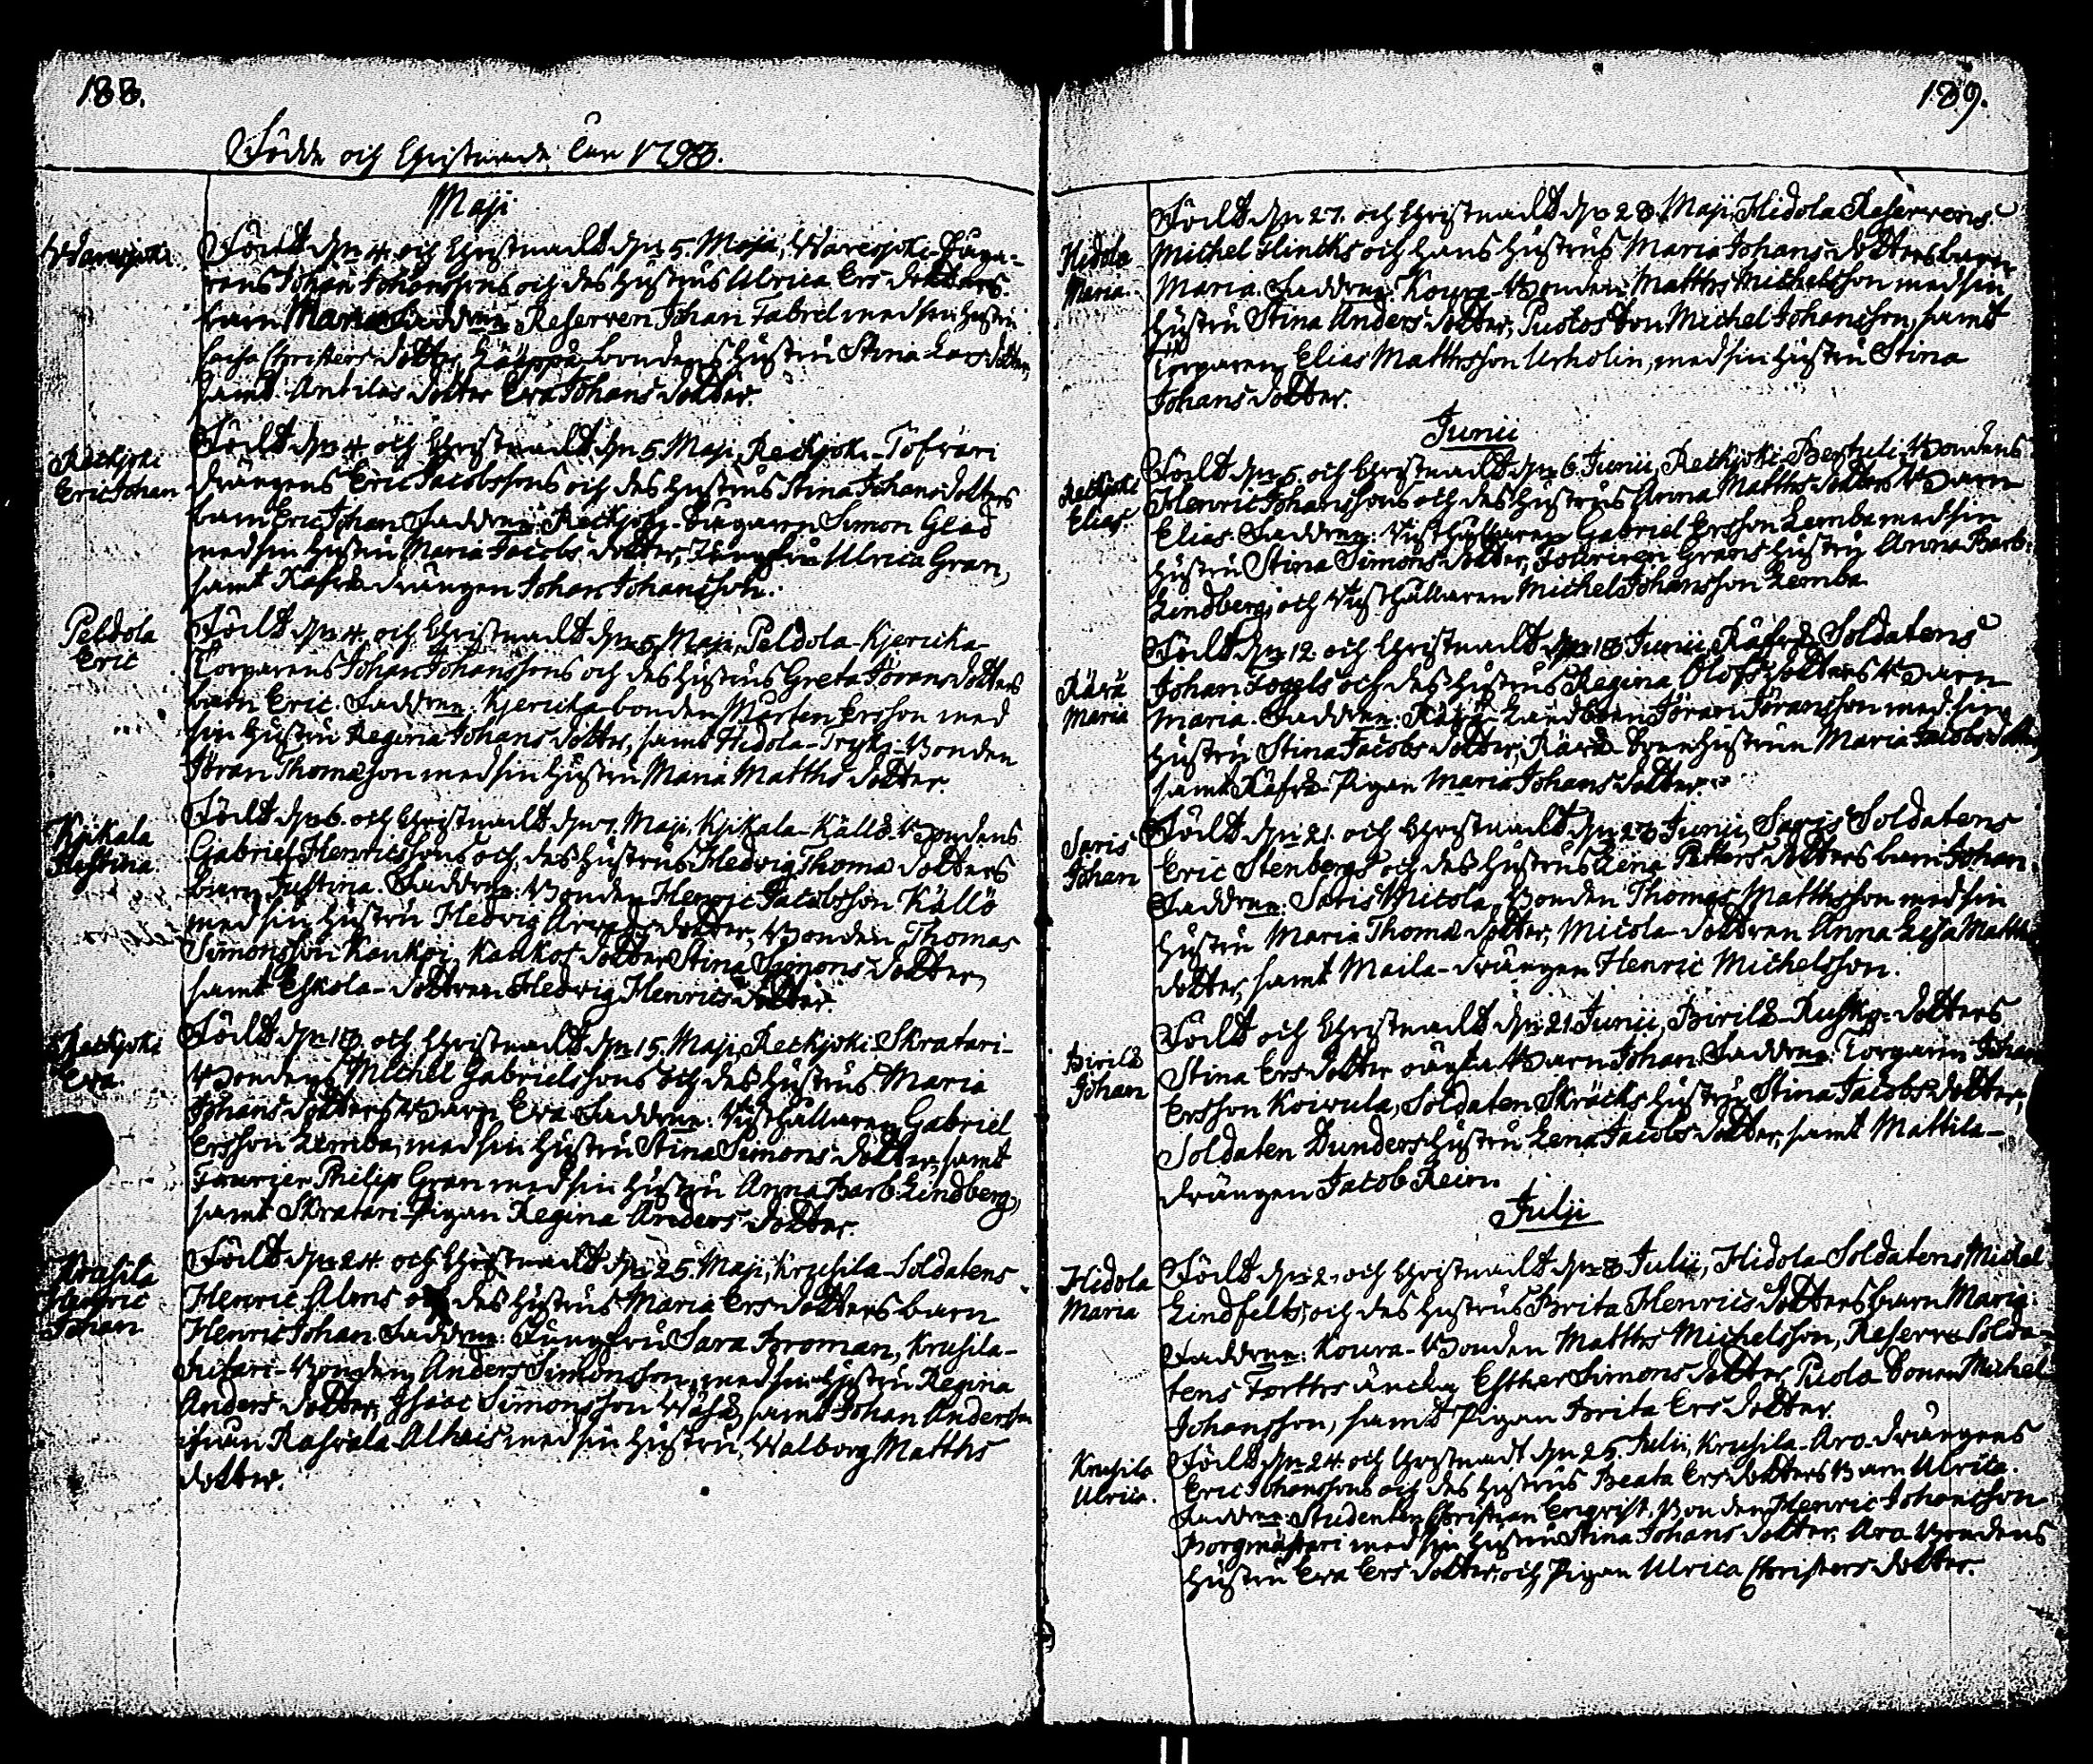 188.
Födde och Christnade Åhr 1793.
Maji
Warespoki
Född den 4. och Christnadt den 5. Maji, Warespoki-Buga-
rens Johan Johanssons och des Hustrus Ulrica Ers dotters
barn Maria. Faddrne: Reserven Johan Fabrel med sin Hustru
Caisa Christers dotter, bondens Hustru Stina Lars dotter,
samt Antilas dotter Eva Johans dotter.
Reckjoki
Eric Johan
Född den 4. och Christnadt den 5. Maji, Reckjoki-Töfräri
drängens Eric Jacobssons och des Hustrus Stina Johans dotters
barn Eric Johan. Faddrne: Reckjoki-Bugaren Simon Glad
med sin Hustru Maria Jacobs dotter, Jungfru Ulrica Gran,
samt drängen Johan Johansson.
Peldola
Eric
Född den 4. och Christnadt den 5. Maji, Peldola-Kjericka-
Torparens Johan Johanssons och des Hustrus Greta Jörans dotters
barn Eric. Faddrne: Kjericka bonden Mårten Ersson med
sin Hustru Regina Johans dotter, samt Hidola-Tryki-Bonden
Jöran Thomasson med sin Hustru Maria Matths dotter.
Kjikala
Justina
Född den 6. och Christnadt den 7. Maji, Kjikala-Källö-Bondens
Gabriel Henricssons och des Hustrus Hedvig Thomæ dotters
barn Justina. Faddrne: Bonden Henric Jacobsson Källö
med sin Hustru Hedvig dotter, Bonden Thomas
Simonsson Kaukoi, Kaukois dotter Stina Simons dotter,
samt Eskola-dottren Hedvig Henrics dotter.
Reckjoki
Eva.
Född den 13. och Christnadt den 15. Maji, Reckjoki-Skratari-
Bondens Michel Gabrielssons och des Hustrus Maria
Johans dotters Barn Eva. Faddrne: Gabriel
Ersson Lemba, med sin Hustru Stina Simons dotter, samt
Fourier Philip Gran med sin Hustru Anna Barb: Lindberg,
samt Skratari-Pigan Regina Anders dotter.
Krusila
Henric
Johan
Född den 24. och Christnadt den 25. Maji, Krusila-Soldatens
Henric Alms och des Hustrus Maria Ers dotters barn
Henric Johan. Faddrne: Jungfru Sara Broman, Krusila-
Sutari-Bonden Anders Simonsson, med sin Hustru Regina
Anders dotter, Isaac Simonsson samt Johan Andersson
ifrån med sin Hustru Walborg Matths
dotter.
189.
Hidola
Maria.
Född den 27. och Christnadt den 28. Maji, Hidola Reservens
Michel Flincks och hans Hustrus Maria Johans dotters barn
Maria. Faddrne: Koura-Bonden Matths Michelsson med sin
Hustru Stina Anders dotter, Michel Johansson, samt
Torparen Elias Matthsson Urholin, med sin Hustru Stina
Johans dotter.
Junii
Reckjoki
Elias.
Född den 5. och Christnadt den 6. Junii, Reckjoki-Bertuli-Bondens
Henric Johanssons och des Hustrus Anna Matths dotters Barn
Elias. Faddrne: Gabriel Ersson Lemba med sin
Hustru Stina Simons dotter, Fourieren Grans Hustru Anna Barb:
Lindberg, och Michel Johansson Lemba.
Räfvä
Maria
Född den 12. och Christnadt den 13. Junii, Räfvä Soldatens
Johan Fogels och des Hustrus Regina Olofs dotters Barn
Maria. Faddrne: Räfvä Landbon Jöran Jöransson med sin
Hustru Stina Jacobs dotter, Räfvä Hustrun Maria Jacobs dotter,
samt Räfvä Pigan Maria Johans dotter.
Saris
Johan
Född den 21. och Christnadt den 23. Junii, Saris Soldatens
Eric Stenbergs och des Hustrus Lena Petters dotters barn Johan.
Faddrne: Saris Micola, Bonden Thomas Matthsson med sin
Hustru Maria Thomæ dotter, Micola-dottren Anna Lisa Matths
dotter, samt Maila-drängen Henric Michelsson.
Birilä
Johan
Född och Christnadt den 21. Junii, Birilä dotters
Stina Ers dotter oägta Barn Johan. Faddrne: Torparen Johan
Ersson Koivula, Soldaten Skräcks Hustru Stina Jacobs dotter,
Soldaten Dunders Hustru Lena Jacobs dotter, samt Mattila-
drängen Jacob Rein.
Julii
Hidola
Maria
Född den 2. och Christnadt den 3. Julii, Hidola Soldatens Michel
Lindfelts och des Hustrus Brita Henrics dotters barn Maria.
Faddrne: Koura-Bonden Matths Michelsson, Reserv Solda-
tens änka Esther Simons dotter, Michel
Johansson, samt Pigan Brita Ers dotter.
Krusila
Ulrica.
Född den 24. och Christnadt den 25. Julii, Krusila-Aro-drängens
Eric Johanssons och des Hustrus Beata Ers dotters Barn Ulrica.
Faddrne: Studenten Christian Engvist, Bonden Henric Johansson
Borgmästari med sin Hustru Stina Johans dotter, Aro-Bondens
Hustru Eva Ers dotter, och Pigan Ulrica Christers dotter.